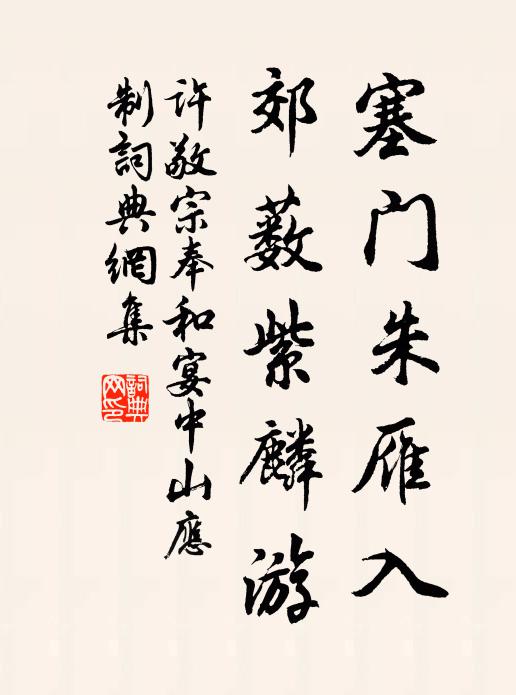 塞门朱雁入
郊薮紫麟游
许敬宗奉和宴中山應
制詞典網集
詞典
网印